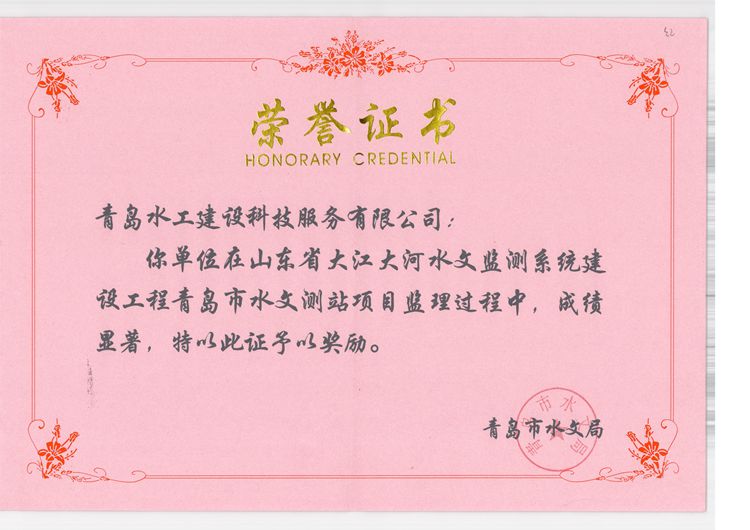 荣誉证书
HONORARY CREDENTIAL
青岛水工建设科技服务有限公司：
你单位在山东省大江大河水文监测系统建
设工程青岛市水文测站项目监理过程中，成绩
显著，特以此证予以奖励。
青岛市水文局
青岛市水文局